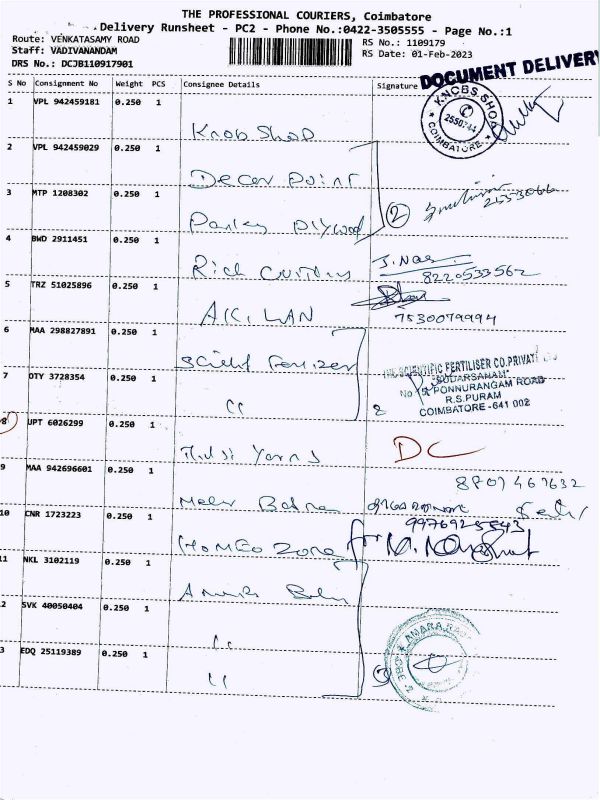 THE PROFESSIONAL COURIERS, Coimbatore
Delivery Runsheet - PC2 - Phone No.:0422-3505555 - Page No.:1
Route: VENKATASAMY ROAD
RS No.: 1109179
Staff: VADIVANANDAM
RS Date: 01-Feb-2023
DRS No.: DCJB110917901
DOCUMENT DELIVERY
S No Consignment No Weight PCS Consignee Details Signature
1 VPL 942459181 0.250 1
KNOBS SHOP
2550744
COIMBATORE
Knob Shop
2 VPL 942459029 0.250 1
Decor Point
3 MTP 1208302 0.250 1
2
2553066
Parley Plywood
4 BWD 2911451 0.250 1
J. Nas
Rich
8220533562
5 TRZ 51025896 0.250 1
7530079994
6 MAA 298827891 0.250 1
THE SCIENTIFIC FERTILISER CO.PRIVATE
"SUDARSANAM"
No PONNURANGAM ROAD
R.S.PURAM
COIMBATORE -641 002
7 OTY 3728354 0.250 1
2
8 UPT 6026299 0.250 1
DC
Tulsi Yarns
9 MAA 942696601 0.250 1
8807467632
10 CNR 1723223 0.250 1
9976925843
Homeo Zone
for
11 NKL 3102119 0.250 1
2 SVK 40050404 0.250 1
3 EDQ 25119389 0.250 1
3